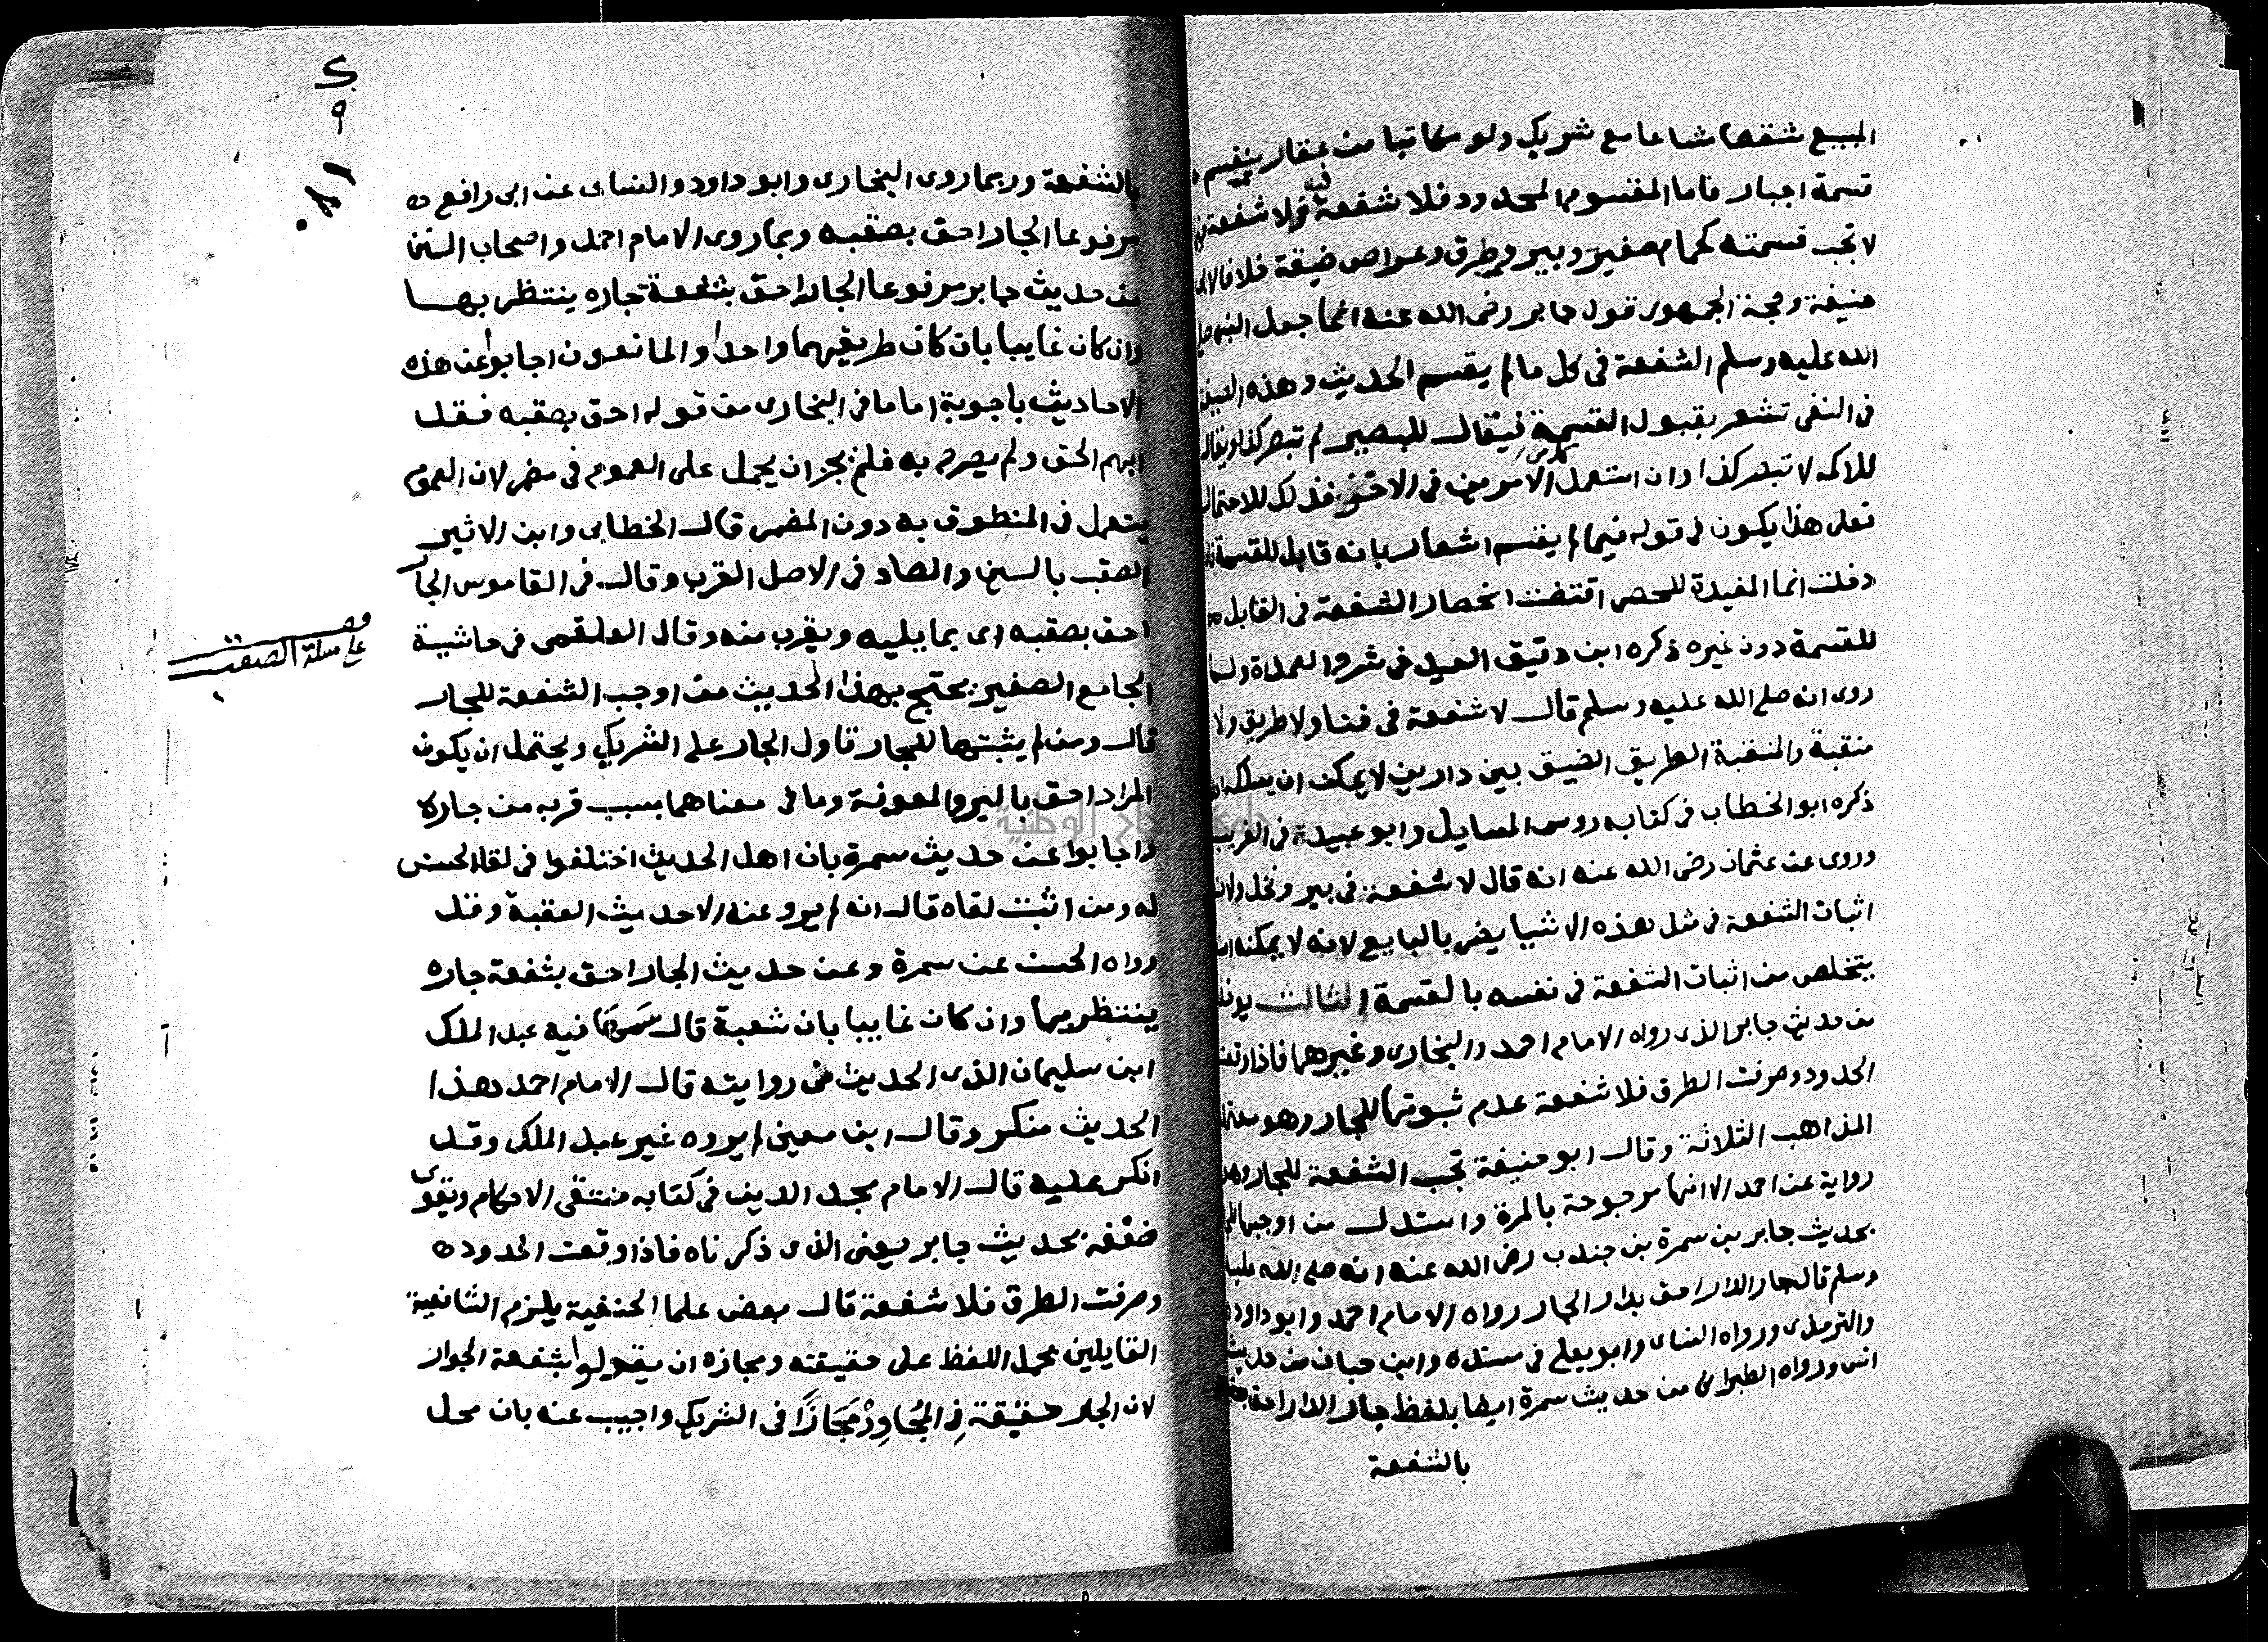 المبيع شقصا مشاعا مع شريك ولو مكاتبا من عقار ينقسم
قسمة اجبار فاما المقسوم المحدود فلا شفعة فيه ولا شفعة فيما
لا تجب قسمته كحمام صغير وبير وطرق وعراص ضيقة خلافا لابي
حنيفة وحجة الجمهور قول جابر رضى الله عنه انما جعل النبي صلى
الله عليه وسلم الشفعة في كل ما لم يقسم الحديث وهذه الصيغة
في النفى تشعر بقبول القسمة فيقال للبصير لم تبصر كذا ويقال
للاكمه لا تبصر كذا وان استعمل الامرين في الاخر فذلك للاحتمال
فعلى هذا يكون في قوله فيما لم يقسم اشعار بانه قابل للقسمة
دخلت انما المفيدة للحصر اقتضت انحصار الشفعة في القابل
للقسمة دون غيره ذكره ابن دقيق العيد في شرح العمدة ولما
روى انه صلى الله عليه وسلم قال لا شفعة في فنا ولا طريق ولا
منقبة والمنقبة الطريق الضيق بين دارين لا يمكن ان يسلكه
ذكره ابو الخطاب في كتابه روس المسايل وابو عبيدة في الغريب
وروى عن عثمان رضى الله عنه انه قال لا شفعة في بير ونخل ولان
اثبات الشفعة في مثل هذه الاشيا يضر بالبايع لانه لا يمكنه ان
يتخلص من اثبات الشفعة في نفسه بالقسمة الثالث يوخذ
من حديث جابر الذى رواه الامام احمد والبخارى وغيرهما فاذا وقعت
الحدود وصرفت الطرق فلا شفعة عدم ثبوتها للجار وهو
المذاهب الثلاثة وقال ابو حنيفة تجب الشفعة للجار وهى
رواية عن احمد الا انها مرجوحة بالمرة واستدل من اوجبها
بحديث جابر بن سمرة بن جندب رضى الله عنه انه صلى الله عليه
وسلم قال جار الدار احق بدار الجار رواه الامام احمد وابو داود
والترمذى ورواه النساى وابو يعلى في مسنده وابن حبان من حديث
انس ورواه الطبراني من حديث سمرة ايضا بلفظ جار الدار احق
بالشفعة
٩
بالشفعة وربما روى البخارى وابو داود والنساى عن ابى رافع
مرفوعا الجار احق بصقبه وبما روى الامام احمد واصحاب السنن
من حديث جابر مرفوعا الجار احق بشفعة جاره ينتظر بها
وان كان غايبا بان كان طريقهما واحدا والمانعون اجابوا عن هذه
الاحاديث باجوبة اما ما في البخارى من قوله احق بصقبه فقد
ابهم الحق ولم يصرح به فلم يجز ان يحمل على العموم في مضمر لان العموم
يتعمل في المنطوق به دون المضمر قال الخطابى وابن الاثير
الصقب بالسين والصاد في الاصل القرب وقال في القاموس الجار
احق بصقبه اى بما يليه ويقرب منه وقال العلقمى في حاشية
الجامع الصغير يحتج بهذا الحديث من اوجب الشفعة للجار
قال ومن لم يثبتها للجار تاول الجار على الشريك ويحتمل ان يكون
المراد احق بالبر والمعونة وما في معناهما بسبب قربه من جاره
واجابوا عن حديث سمرة بان اهل الحديث اختلفوا في لقا الحسن
له ومن اثبت لقاه قال انه لم يرو عنه الا حديث العقبة وقد
رواه الحسن عن سمرة وعن حديث الجار احق بشفعة جاره
ينتظر بها وان كان غايبا بان شعبة قال سهى فيه عبد الملك
ابن سليمان الذى الحديث من روايته قال الامام احمد هذا
الحديث منكر وقال ابن معين لم يروه غير عبد الملك وقد
انكر عليه قال الامام مجد الدين في كتابه منتقى الاحكام ويقوى
ضعفه بحديث جابر يعنى الذى ذكرناه فاذا وقعت الحدود
وصرفت الطرق فلا شفعة قال بعض علما الحنفية يلزم الشافعية
القايلين بحمل اللفظ على حقيقته ومجازه ان يقولوا بشفعة الجوار
لان الجار حقيقة في المجاور مجازا في الشريك واجيب عنه بان محل
على مسلة الصقب